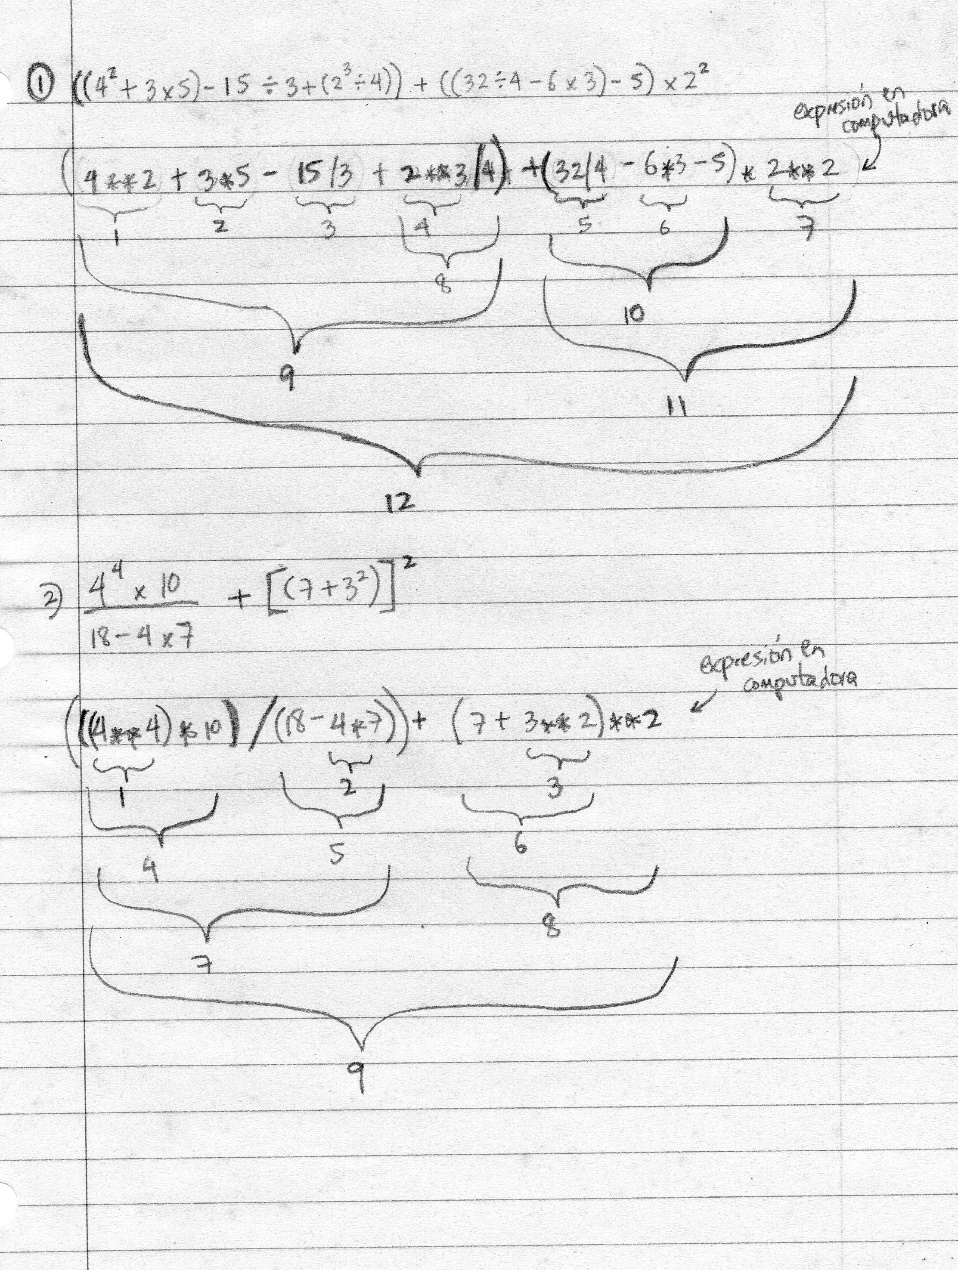 ① ((4²+3x5)-15÷3+(2³÷4))+((32÷4-6x3)-5)x2²
expresión en
computadora
(4**2+3*5-15/3+2**3/4)+(32/4-6*3-5)*2**2
1 2 3 4 5 6 7
8
10
9
11
12
2) 4⁴ x 10 + [(7+3²)]²
18-4x7
expresión en
computadora
(((4**4)*10)/(18-4*7))+(7+3**2)**2
1 2 3
4 5 6
7 8
9